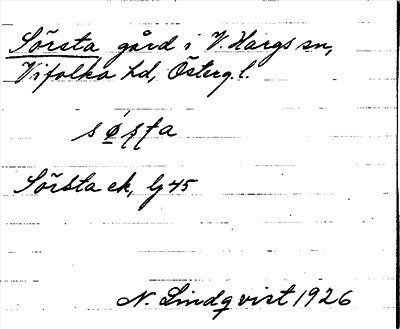 Sörsta gård i V. Hargs sn,
Vifolka hd, Österg. l.
Sörsta ek, lj 45
N. Lindqvist 1926